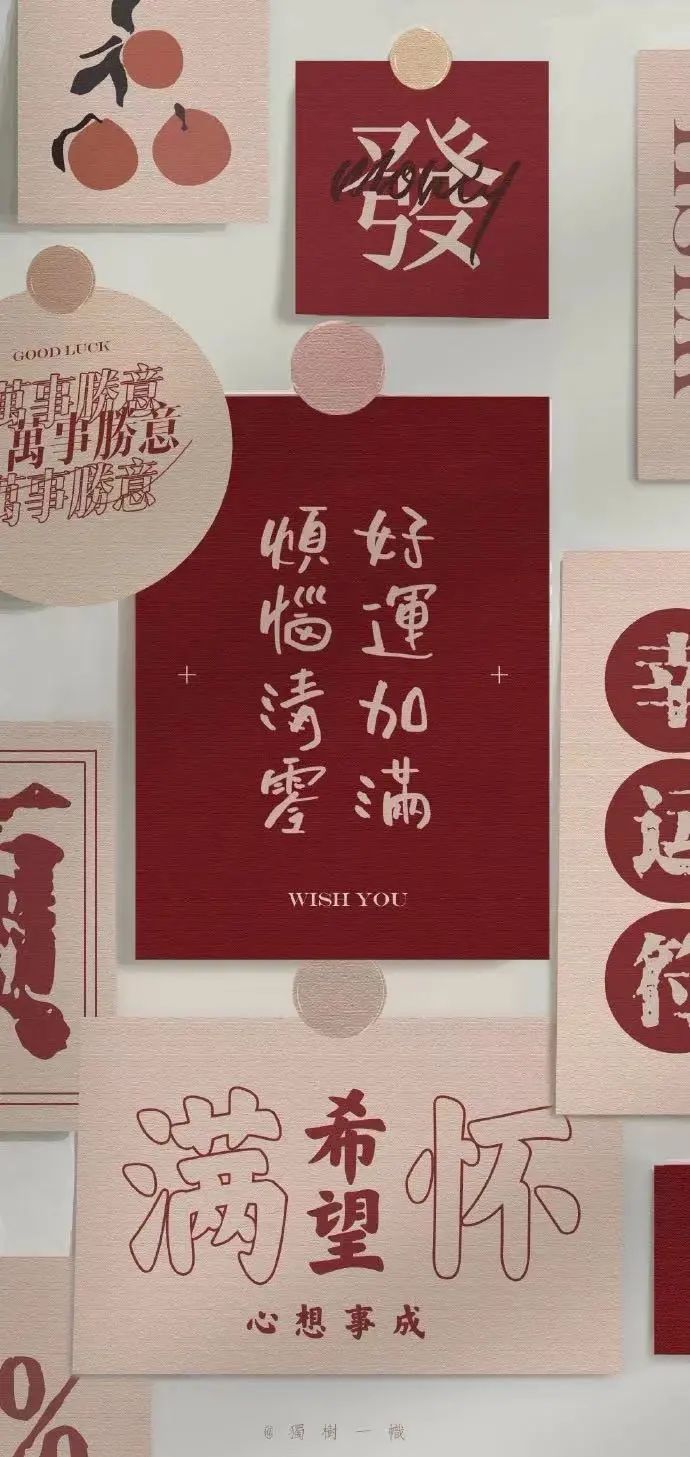 發
money
GOOD LUCK
萬事勝意
萬事勝意
萬事勝意
好運加滿
煩惱清零
WISH YOU
幸
运
符
满怀
希望
心想事成
%
@獨樹一幟